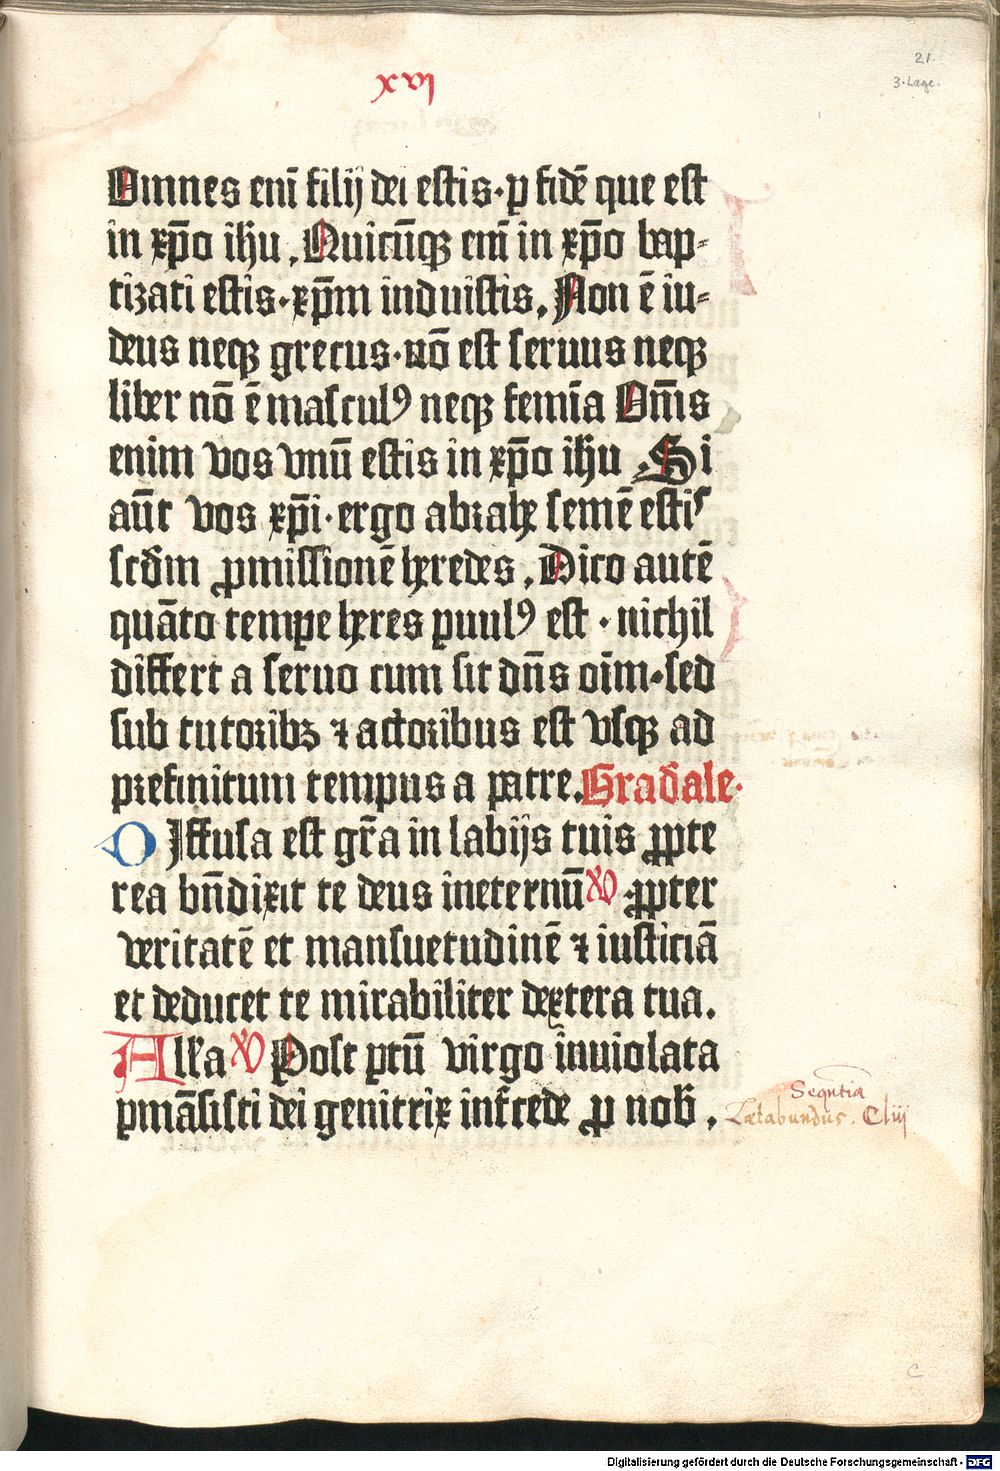 xvi
21.
3. Lage.
Omnes eni̅ filij dei estis · ꝑ fidē que est
in xp̅o ihu . Quicu̅qꝫ eni̅ in xp̅o bap⸗
tizati estis · xp̅m induistis . Non ē iu⸗
deus neqꝫ grecus · nō est seruus neqꝫ
liber nō ē masculꝰ neqꝫ femīa Om̅s
enim vos vnū estis in xp̅o ihu . Si
aut̅ vos xp̅i · ergo abrahe semē estis
scd̅m ꝓmissionē heredes . Dico autē
quāto tempe heres ꝑuulꝰ est · nichil
differt a seruo cum sit dn̅s oīm · sed
sub tutoribꝫ ⁊ actoribus est vsqꝫ ad
prefinitum tempus a patre . Grad̅ale ·
DIffusa est gr̅a in labijs tuis ꝓpte
rea bn̅dixit te deus ineternū ℣ ꝓpter
veritatē et mansuetudinē ⁊ iusticiā
et deducet te mirabiliter dextera tua .
All̅a ℣ Post ꝑtū virgo inuiolata
ꝑmāsisti dei genitrix int̅cede ꝓ nob̅ .
Sequ̅tia
Lætabundus . Cliij
c
Digitalisierung gefördert durch die Deutsche Forschungsgemeinschaft - DFG